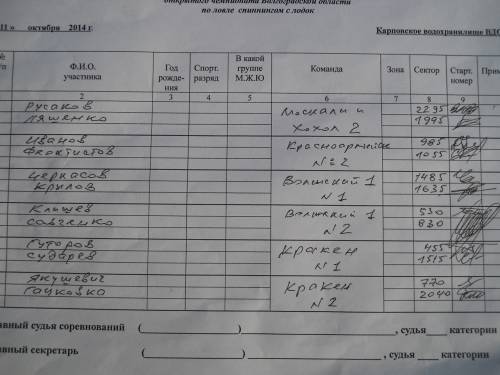 открытого чемпионата Волгоградской области
по ловле спиннингом с лодок
11 » октября 2014 г.
Карповское водохранилище ВДС
Ф.И.О. участника
Год рожде- ния
Спорт. разряд
В какой группе М.Ж.Ю
Команда
Зона
Сектор
Старт. номер
При
2 3 4 5 6 7 8 9
Русаков Москали и 2295
Ляшенко Хохол 2 1995
Иванов Красноармейск 985
Феоктистов №2 1055
Черкасов Волжский 1 1485
Крылов №1 1635
Клышев Волжский 1 530
Савченко №2 830
Гуторов Кракен 455
Сударев №1 1515
Якушевич Кракен 770
Гацковка №2 2040
авный судья соревнований ( ) , судья категории
авный секретарь ( ) , судья категории